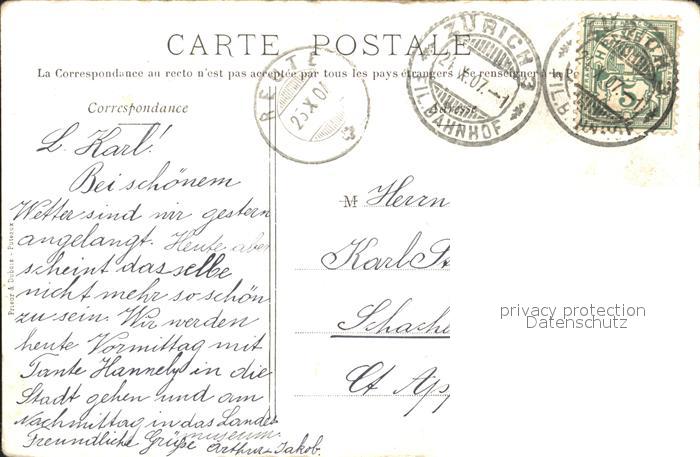 CARTE POSTALE
La Correspondance au recto n'est pas acceptée par tous les pays étrangers. Se renseigner à la Po
Correspondance
L. Karl!
Bei schönem
Wetter sind wir gestern
angelangt. Heute aber
scheint dasselbe
nicht mehr so schön
zu sein. Wir werden
heute Vormittag mit
Tante Hannely in die
Stadt gehen und am
Nachmittag in das Landes
museum.
Freundliche Grüße Arthur + Jakob.
Prieur & Dubois - Puteaux
M Herrn
Karl St
Schache
Ct App
25 X 07
ZÜRICH 3
24.X.07.-1
FIL. BAHNHOF
5
privacy protection
Datenschutz